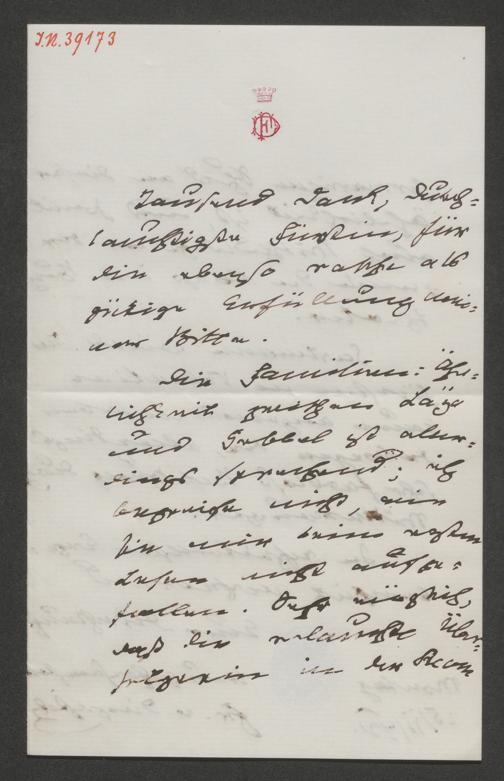 J.N. 39173
Tausend Dank, Durch-
lauchtigste Fürstin, für
die ebenso rasche als
gütige Erfüllung mei-
ner Bitte.
Die Familien-Ähn-
lichkeit zwischen Lajo
und Hebbel ist aller-
dings sprechend; ich
begreife nicht, wie
sie mir beim ersten
Lesen nicht aufge-
fallen. Sehr möglich,
daß die erlauchte Über-
setzerin in der Form